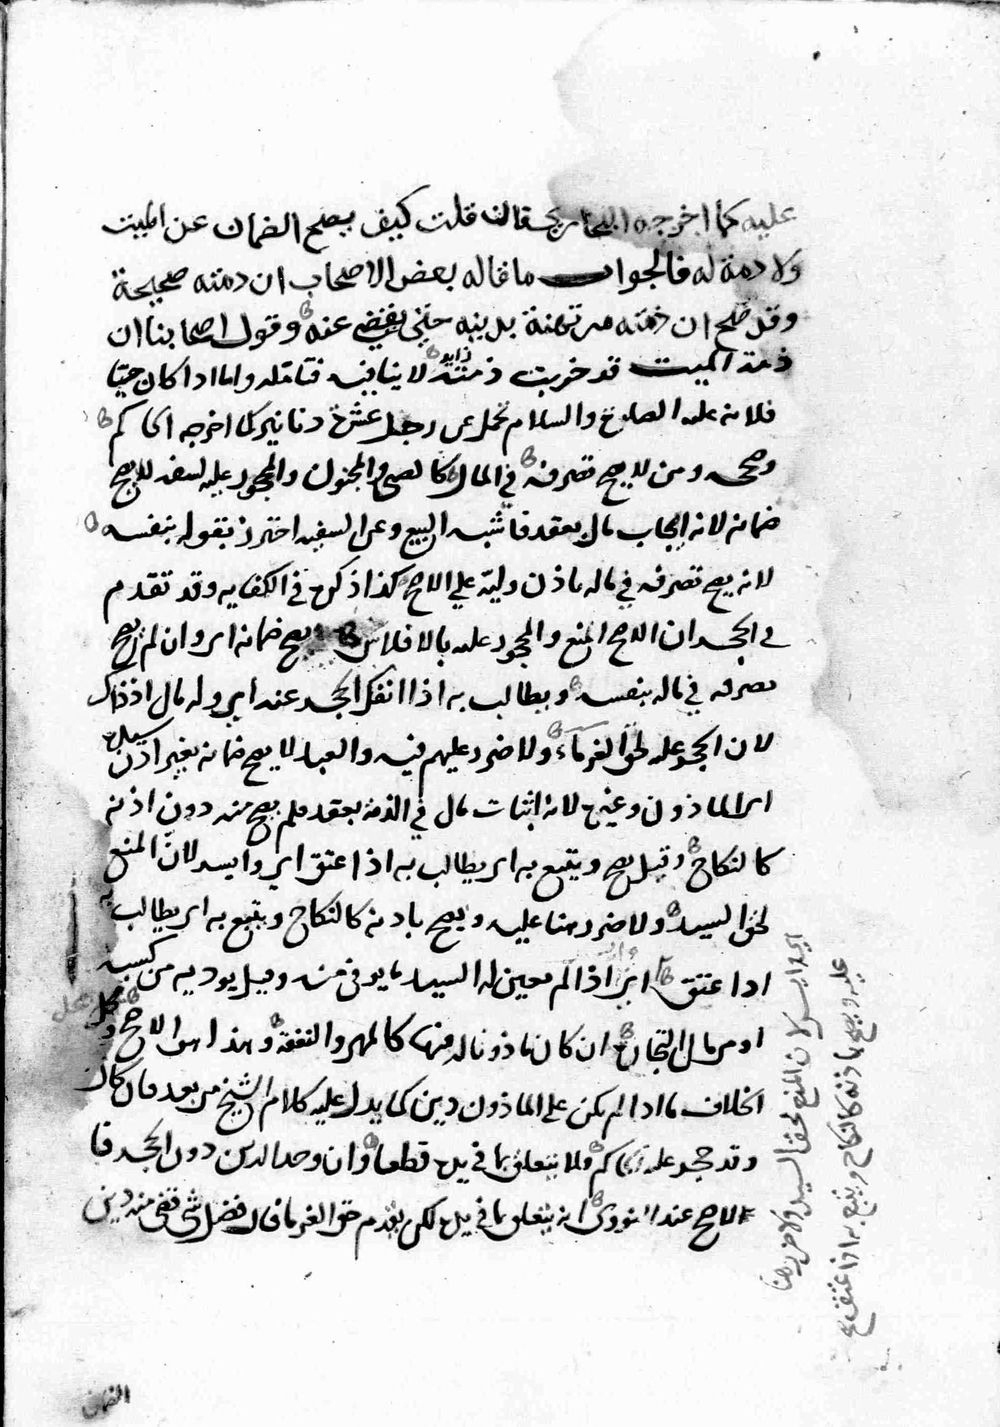 عليه كما اخرجه البخاري فان قلت كيف يصح الضمان عن الميت
ولا ذمة له فالجواب ما قاله بعض الاصحاب ان ذمته صحيحة
وقد صح ان ذمته مرتهنة بدينه حتى يقضى عنه وقول اصحابنا ان
ذمة الميت قد خربت ذمته لا ينافيه فتامله واما اذا كان حيا
فلانه عليه الصلاة والسلام تحمل عن رجل عشرة دنانير كما اخرجه الحاكم
وصححه ومن لا يصح تصرفه في المال كالصبي والمجنون والمحجور عليه لسفه لا يصح
ضمانه لانه ايجاب مال بعقد فاشبه البيع وعن السفيه احترز بقوله بنفسه
لانه يصح تصرفه في ماله باذن وليه على الاصح كذا ذكره في الكفايه وقد تقدم
في الحجر ان الاصح المنع والمحجور عليه بالافلاس يصح ضمانه اي وان لم يصح
تصرفه في ماله بنفسه ويطالب به اذا انفك الحجر عنه اي وله مال اذ ذاك
لان الحجر عليه لحق الغرماء ولا ضرر عليهم فيه والعبد لا يصح ضمانه بغير اذن سيده
اي الماذون وغيره لانه اثبات مال في الذمة بعقد فلم يصح منه دون اذنه
كالنكاح وقيل يصح ويتبع به اي يطالب به اذا عتق اي وايسر لان المنع
لحق السيد ولا ضرر هنا عليه ويصح باذنه كالنكاح ويتبع به اي يطالب به
اذا عتق اي اذا لم يعين له السيد ما يوفي منه وقيل يوديه من كسبه
او من مال التجارة ان كان ماذونا له فيها كالمهر والنفقة وهذا هو الاصح ومحل
الخلاف ما اذا لم يكن على الماذون دين كما يدل عليه كلام الشيخ من بعد فان كان
وقد حجر عليه الحاكم فلا يتعلق بما في يده قطعا وان وجد الدين دون الحجر فا
الاصح عند النووي انه يتعلق بما في يده لكن يقدم حق الغرما فان فضل شي قضى منه دين
الضمان
لان المنع لحق السيد ولا ضرر هنا
عليه ويصح باذنه كالنكاح ويتبع به اذا عتق